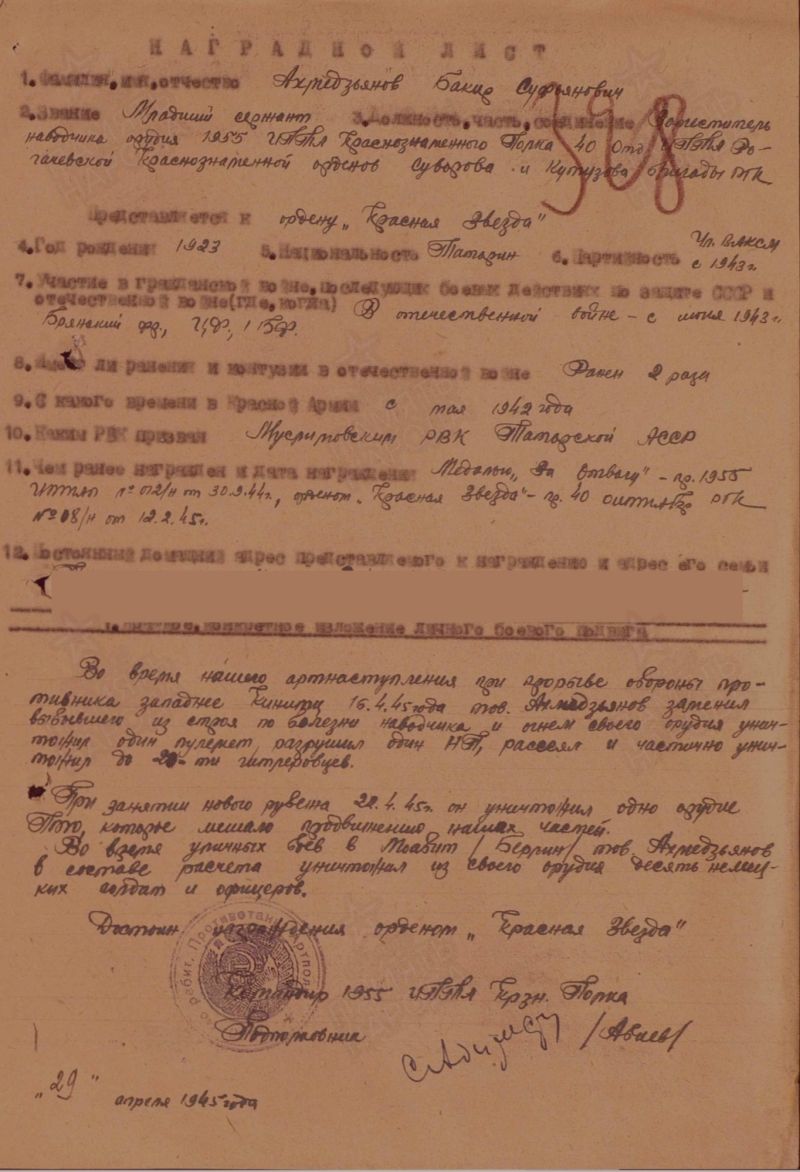 НАГРАДНОЙ ЛИСТ
1. Фамилия, имя, отчество Ахмедзьянов Бакир Суфьянович
2. Звание Младший сержант 3. Должность, часть, соединение Заместитель
наводчика орудия 1955 ИПТАП Краснознаменного Полка 40 Отд. ИПТА Ро-
гачевской Краснознаменной орденов Суворова и Кутузова бригады РГК
Представляется к ордену „Красная Звезда"
4. Год рождения 1923 5. Национальность Татарин 6. Партийность Чл. ВЛКСМ
с 1943 г.
7. Участие в гражданской войне, последующих боевых действиях по защите СССР и
отечественной войне (где, когда) В отечественной войне – с июня 1943 г.
Брянский фр., ЦФ, 1 БФ.
8. Имеет ли ранения и контузии в отечественной войне Ранен 2 раза
9. С какого времени в Красной Армии с мая 1942 года
10. Каким РВК призван Муслимовским РВК Татарской АССР
11. Чем ранее награжден и дата награждения Медалью „За Отвагу" – пр. 1955
ИПТАП № 012/н от 30.9.44 г., орденом „Красная Звезда" – пр. 40 оиптабр РГК
№ 08/н от 12.2.45 г.
12. Постоянный домашний адрес представляемого к награждению и адрес его семьи
1. Краткое, конкретное изложение личного боевого подвига
Во время нашего артнаступления при прорыве обороны про-
тивника западнее Киниту 16.4.45 года тов. Ахмедзьянов заменил
выбывшего из строя по болезни наводчика и огнем своего орудия унич-
тожил один пулемет, разрушил один НП, рассеял и частично унич-
тожил до 20-ти гитлеровцев.
При занятии нового рубежа 22.4.45 г. он уничтожил одно орудие
ПТО, которое мешало продвижению наших частей.
Во время уличных боев в Моабит /Берлин/ тов. Ахмедзьянов
в составе расчета уничтожил из своего орудия десять немец-
ких солдат и офицеров.
Достоин награждения орденом „Красная Звезда"
Командир 1955 ИПТАП Крзн. Полка
Подполковник /Авиев/
„29"
апреля 1945 года